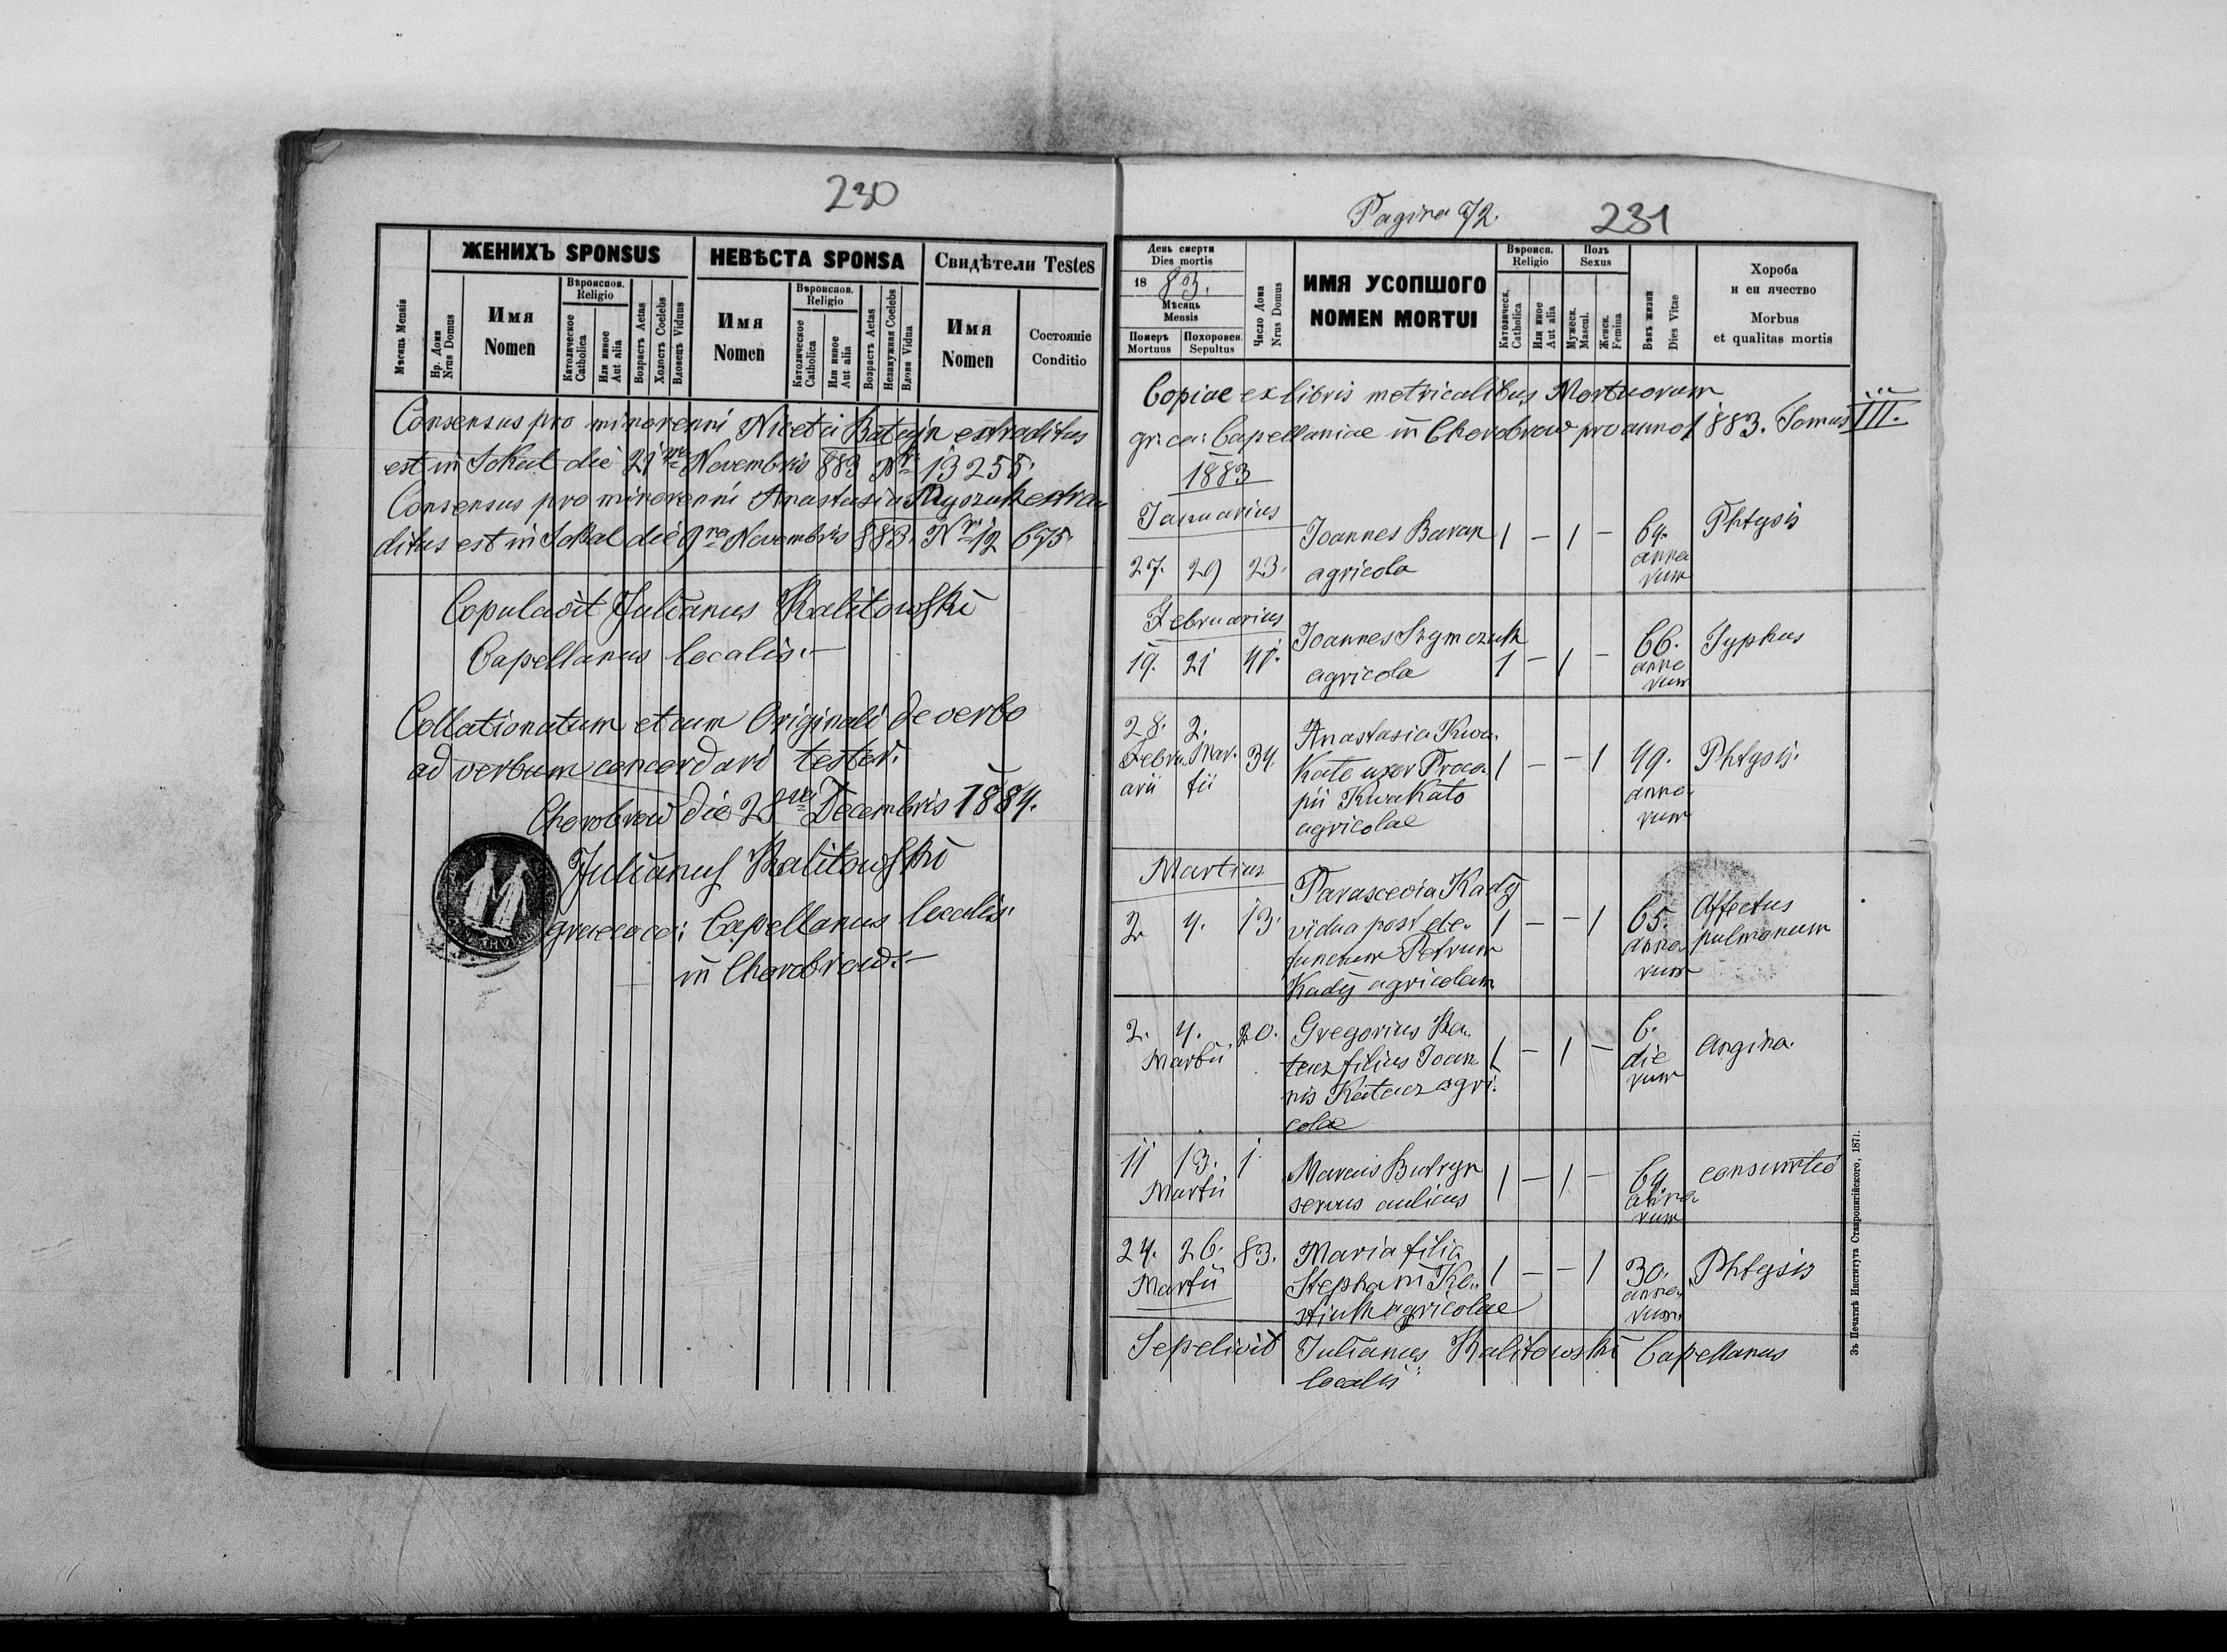 230
ЖЕНИХЪ SPONSUS
НЕВѢСТА SPONSA
Свидѣтели Testes
Мѣсяць Mensis
Нр. Дома Nrus Domus
Имя Nomen
Вѣроиспов. Religio
Католическое Catholica
Или иное Aut alia
Возрастъ Aetas
Холостъ Coelebs
Вдовецъ Viduus
Имя Nomen
Вѣроиспов. Religio
Католическое Catholica
Или иное Aut alia
Возрастъ Aetas
Незамужная Coelebs
Вдова Vidua
Имя Nomen
Состояніе Conditio
Consensus pro minorenni Niceta extraditus
est in Sokal die 21 Novembris 883 Nr 13255.
Consensus pro minorenni Anastasia extra
ditus est in Sokal die 9na Novembris 883. Nr 12 675.
Copulavit Julianus Kalitowski
Capellanus localis.-
Collationatum et cum Originali de verbo
ad verbum concordari testor.
Chorobrow die 28va Decembris 1884.
Julianus Kalitowski
graeco ca: Capellanus localis.
in Chorobrow.-
Pagina 72. 231
День смерти Dies mortis
1883.
Мѣсяць Mensis
Померъ Mortuus
Похоронен. Sepultus
Число Дома Nrus Domus
ИМЯ УСОПШОГО
NOMEN MORTUI
Вѣроисп. Religio
Католическ. Catholica
Или иное Aut alia
Полъ Sexus
Мужеск. Mascul.
Женск. Femina
Вѣкъ жизни Dies Vitae
Хороба
и еи ячество
Morbus
et qualitas mortis
Copiae ex libris metricalibus Mortuorum
gr: ca: Capellaniae in Chorobrow pro anno 1883. Tomus III.
1883
Januarius
27. 29 23. Joannes Baran agricola 1 - 1 - 64. annorum Phtysis
Februarius
19. 21 41. Joannes Szymczuk agricola 1 - 1 - 66. annorum Typhus
28. Februarii 2. Martii 34. Anastasia Kwa-
kato uxor Proco
pii Kwakato
agricolae 1 - - 1 49. annorum Phtysis.
Martius
2. 4. 13. Parascevia Kady
vidua post de-
functum Petrum
Kady agricolam 1 - - 1 65. annorum Affectus pulmonum
2. 4. Martii 20. Gregorius Ka-
tacz filius Joan
nis Katacz agri
colae 1 - 1 - 6. dierum angina.
11 13. Martii 1. Marcus Butryn
servus aulicus 1 - 1 - 64 annorum
24. 26. Martii 83. Maria filia
Stephani Ko-
stiuk agricolae 1 - - 1 30. annorum. Phtysis
Sepelivit Julianus Kalitowski Capellanus
localis
Зъ Печатнѣ Института Ставропигійского, 1871.